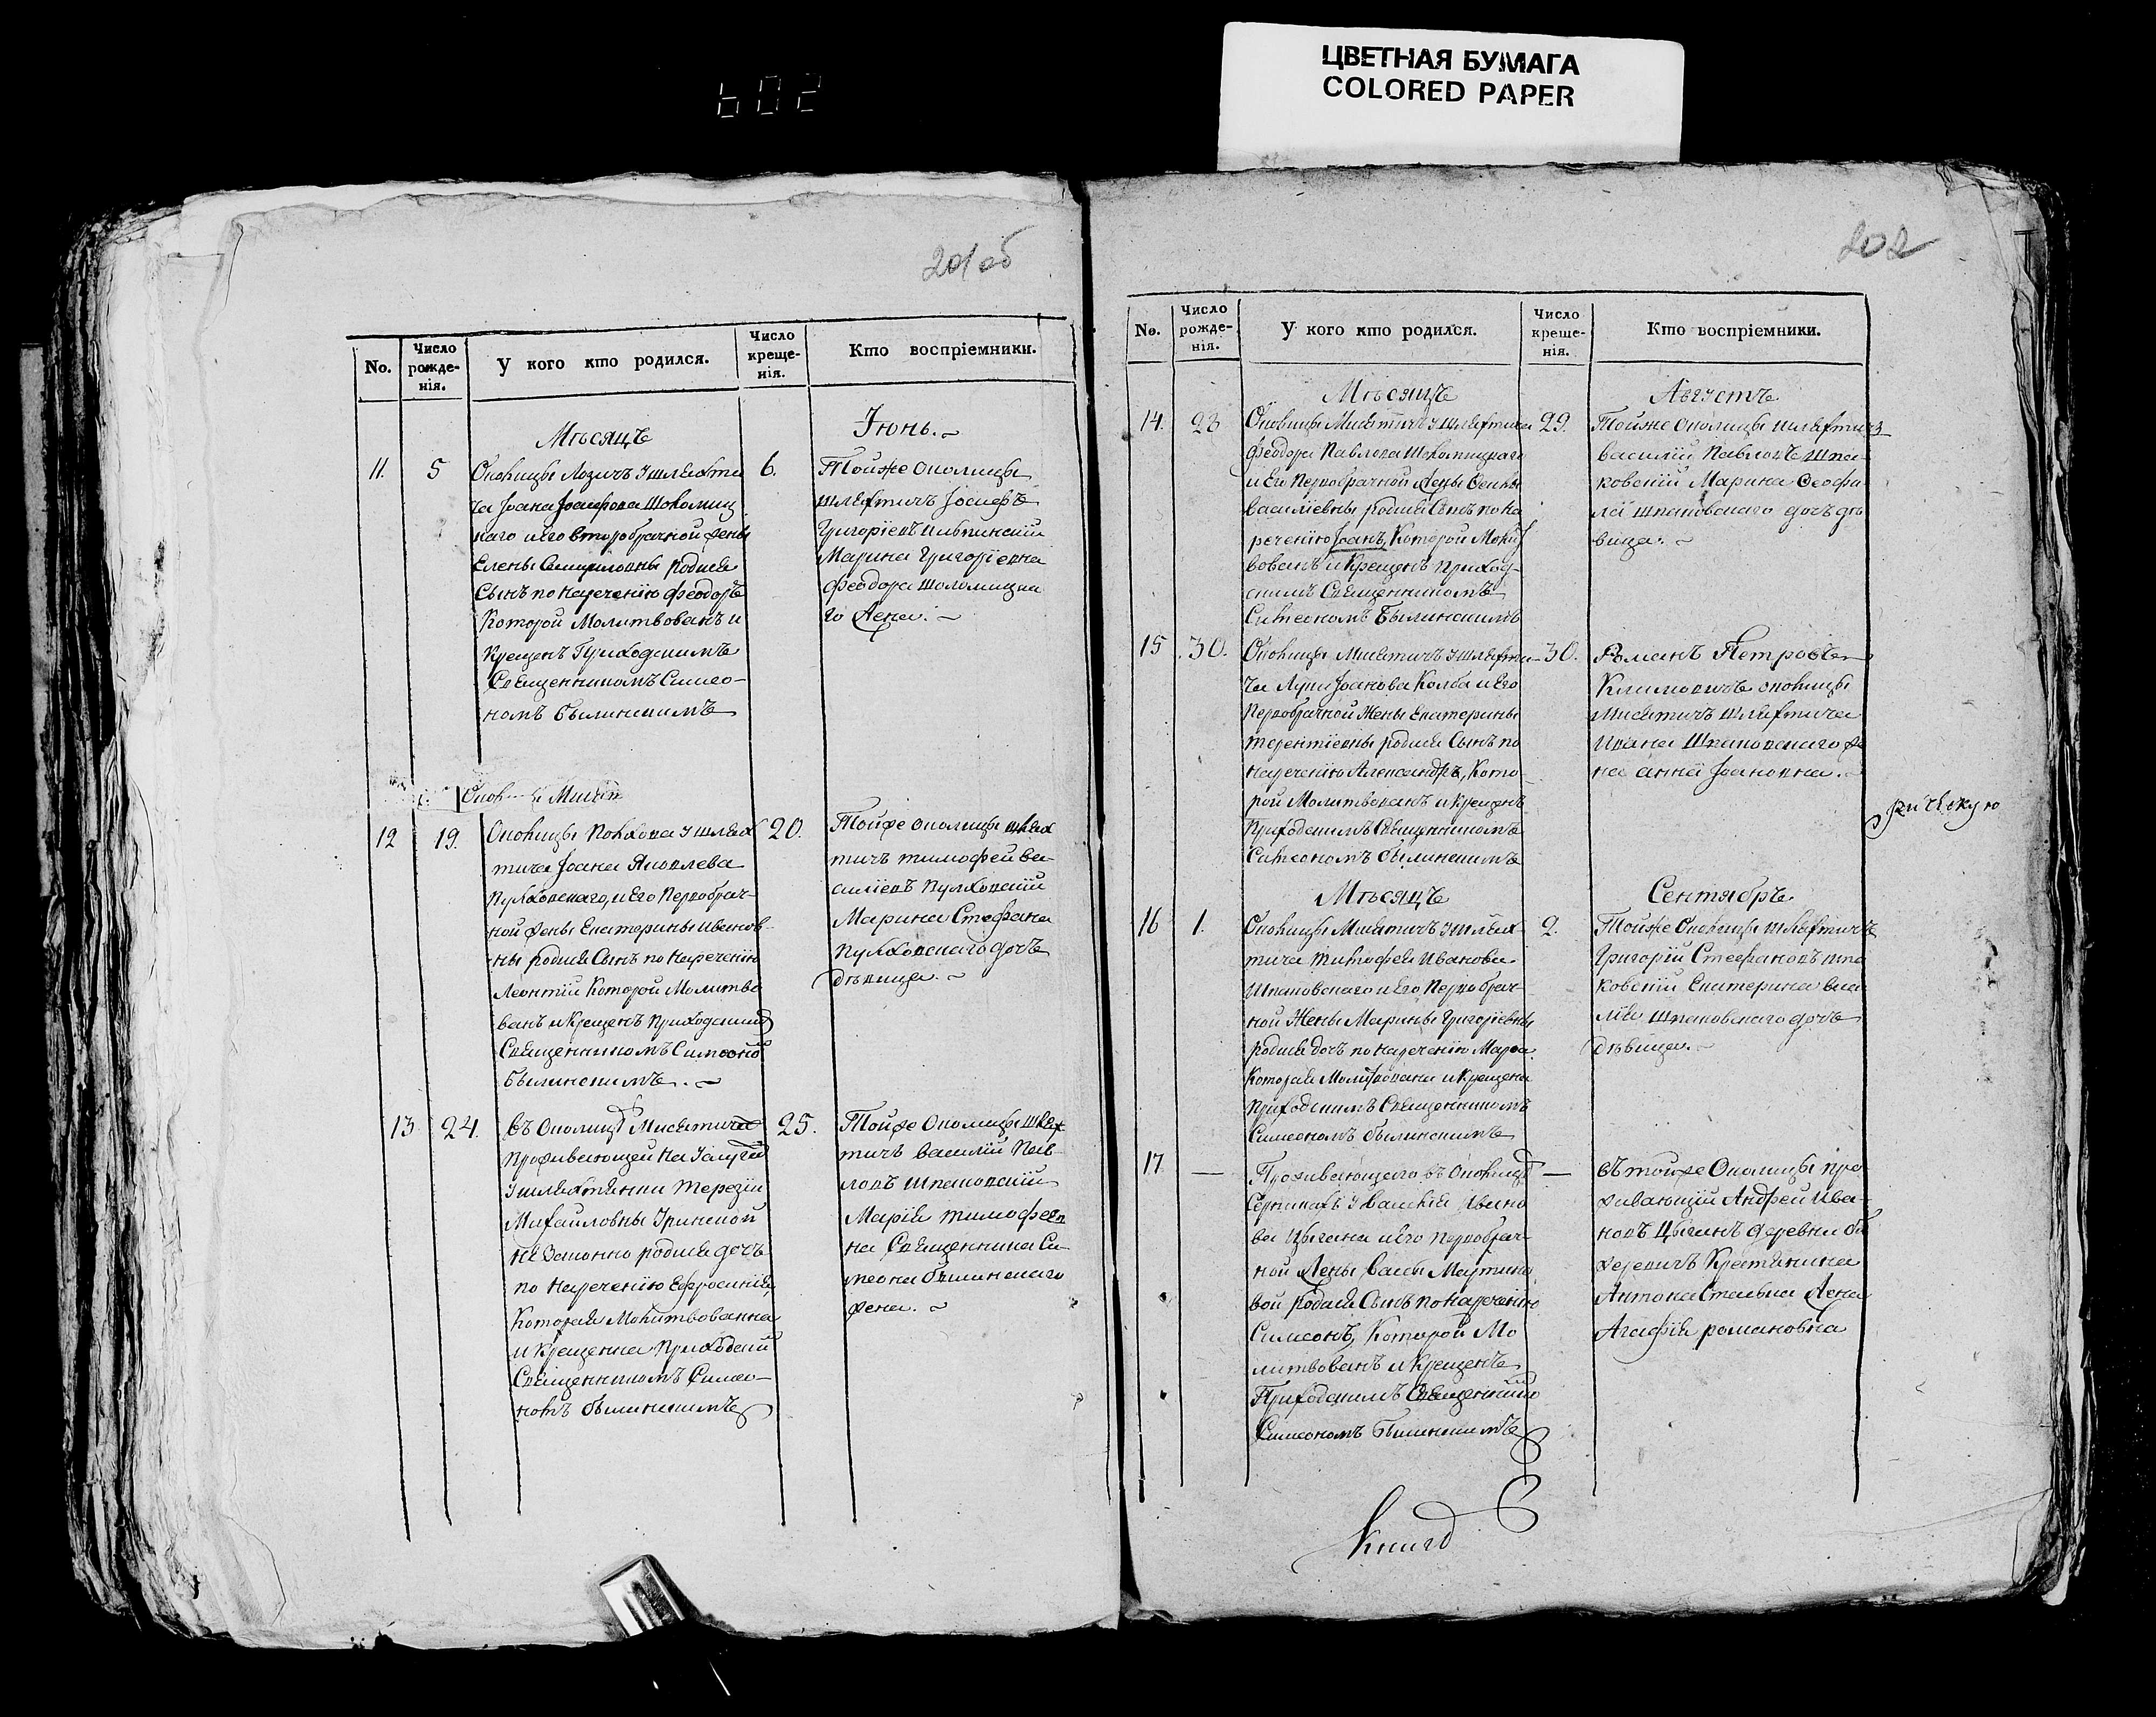 ЦВЕТНАЯ БУМАГА
COLORED PAPER
602
201 об
No.
Число рожде-нія.
У кого кто родился.
Число креще-нія.
Кто воспріемники.
Мѣсяцъ
Іюнь.
11.
5
Околицы Лозичъ у шляхти
ча Іоана Іосифова Шоломиц
каго и его второбрачной жены
Елены родился
Сынъ по нареченію Феодоръ
Которой Молитвованъ и
Крещенъ Приходскимъ
Священникомъ Симео-
номъ Былинскимъ
6.
Тойже околицы
шляхтичъ Іосифъ
Григоріевъ
Марина Григоріевна
Феодора Шоломицка
го жена.
12
19.
Околицы у шлях
тича Іоана Яковлева
Пулховскаго, и Его Первобрач-
ной жены Екатерины Иванов-
ны родился Сынъ по нареченію
Леонтій Которой Молитво
ванъ и Крещенъ Приходским
Священникомъ Симеоно
Былинскимъ.
20.
Тойже околицы шлях
тичъ тимофей Ва-
силіевъ Пулховскій
Марина Стефана
Пулховскаго дочь
дѣвица.
13
24.
Въ Околицѣ Мисятича
Проживающей на Услугѣ
у шляхтянки Терезіи
Михайловны
не Законно родися дочь
по нареченію Ефросинія,
Которая Молитвованна
и Крещенна Приходски
Священникомъ Симео-
номъ Былинскимъ
25.
Тойже Околицы шлях
тичъ Василій Пав-
ловъ Шпаковскій
Марія тимофеев
на Священника Си-
меона Былинскаго
жена.
202
No.
Число рожде-нія.
У кого кто родился.
Число креще-нія.
Кто воспріемники.
Мѣсяцъ
Августъ
14.
28
Околицы Мисятичъ у шляхтича
Феодора Павлова Шоломицкаго
и Его Первобрачной жены
Василіевны родился Сынъ по на
реченію Іоанъ, Которой Молит
вованъ и Крещенъ Приход-
скимъ Священникомъ
Симеономъ Былинскимъ
29.
Тойже околицы шляхтичъ
Василій Павловъ Шпа-
ковскій Марина Феофи-
ла Шпаковскаго дочь дѣ
вица.
15
30.
Околицы Мисятичъ у шляхти-
ча Луки Іоанова Колба и Его
Первобрачной Жены Екатерины
Терентіевны родися Сынъ по
нареченію Александръ, Кото-
рой Молитвованъ и Крещенъ
Приходскимъ Священникомъ
Симеономъ Былинскимъ
30.
Романъ Петровъ
Климовичъ околицы
Мисятичъ шляхтича
Ивана Шпаковскаго же
на анна Іоановна.
Мѣсяцъ
Сентябрь
16
1.
Околицы Мисятичъ у шлях-
тича Тимофея Иванова
Шпаковскаго и Его Первобрач-
ной Жены Марины Григоріевны
родися дочь по нареченію Марѳа
Которая Молитвована и Крещена
Приходскимъ Священникомъ
Симеономъ Былинскимъ
2.
Тойже Околицы шляхтичъ
Григорій Стефановъ шпа
ковскій Екатерина
Шпаковскаго дочь
дѣвица.
17
—
Проживающаго въ Околицѣ
у Ивано
ва Цыгана и Его первобрач-
ной Жены Мартино
вой родися Сынъ по нареченію
Симеонъ, Которой Мо
литвованъ и Крещенъ
Приходскимъ Священнико
Симеономъ Былинскимъ
—
въ тойже Околицы про
живающій Андрей Ива-
новъ Цыганъ деревни
Крестянина
Антона жена
Агафія романовна
книгѣ